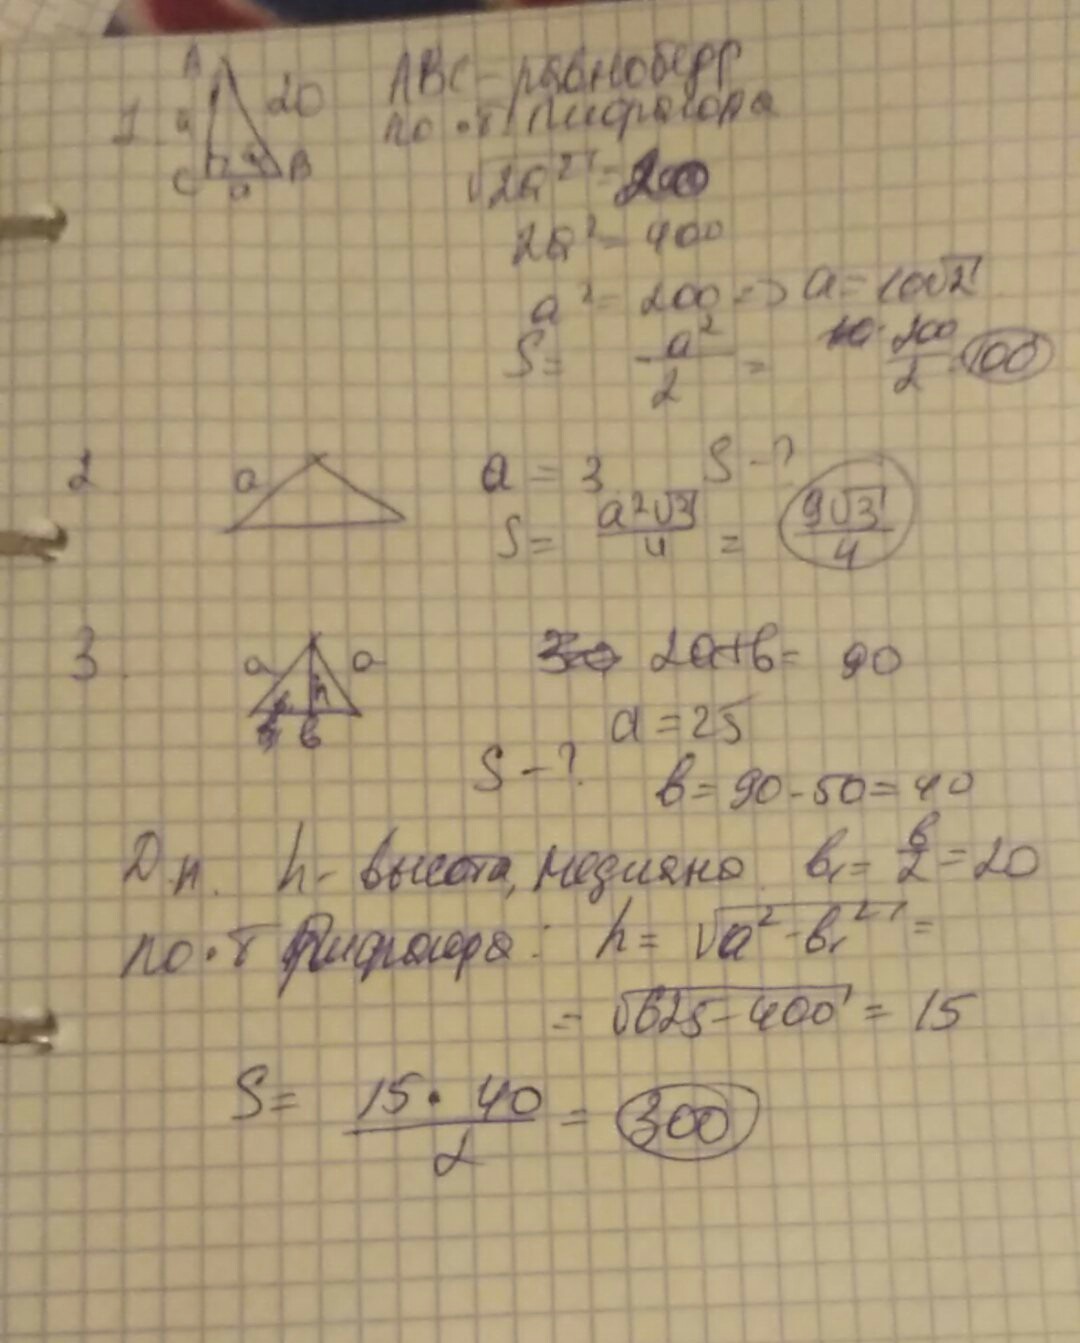 1.
A
20
a
C
a
B
ABC - равнобедр
по т Пифагора
√2a² = 20
2a² = 400
a² = 200 => a = 10√2
S = a²/2 = 200/2 = 100
2
a
a = 3 S - ?
S = a²√3/4 = 9√3/4
3.
a
a
h
b
2a+b = 90
a = 25
S - ?
b = 90 - 50 = 40
Д.п. h - высота, медиана. b₁ = b/2 = 20
по т Пифагора: h = √a² - b₁² =
= √625 - 400 = 15
S = 15 · 40/2 = 300